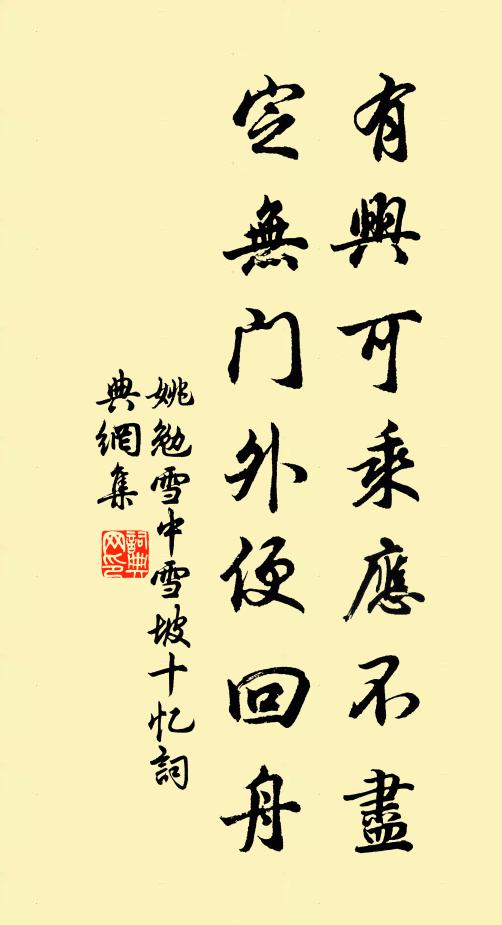 有興可乘應不盡
定無門外便回舟
姚勉雪中雪坡十忆詞
典網集
詞典网印